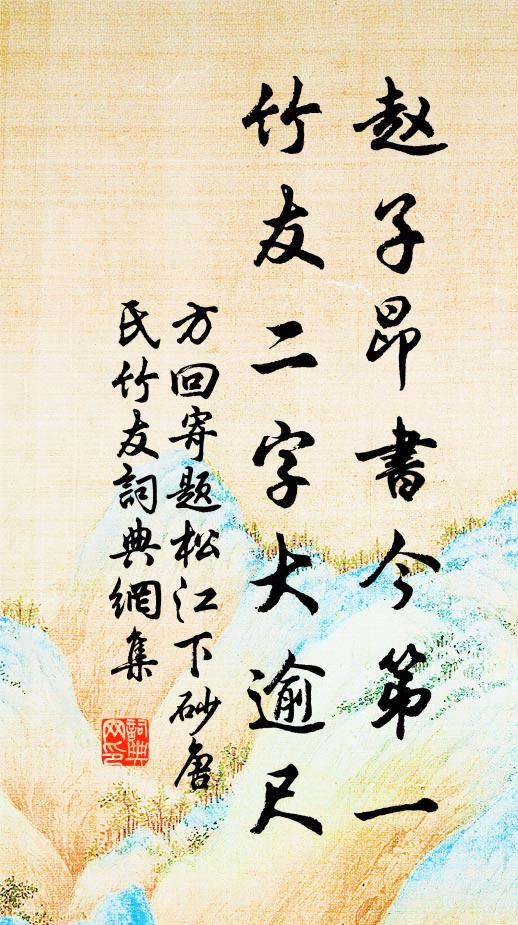 赵子昂書今第一
竹友二字大逾尺
方回寄题松江下砂唐
氏竹友詞典網集
詞典网印